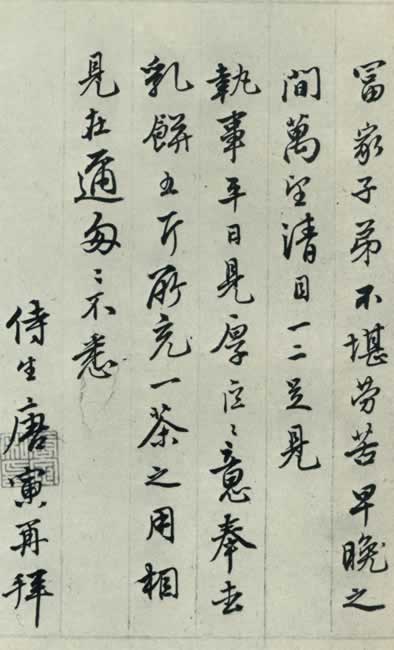 富家子弟不堪劳苦早晚之
間萬望清目一二足見
執事平日見厚區〻意奉去
乳餅五斤聊充一茶之用相
見在邇匆〻不悉
侍生唐寅再拜